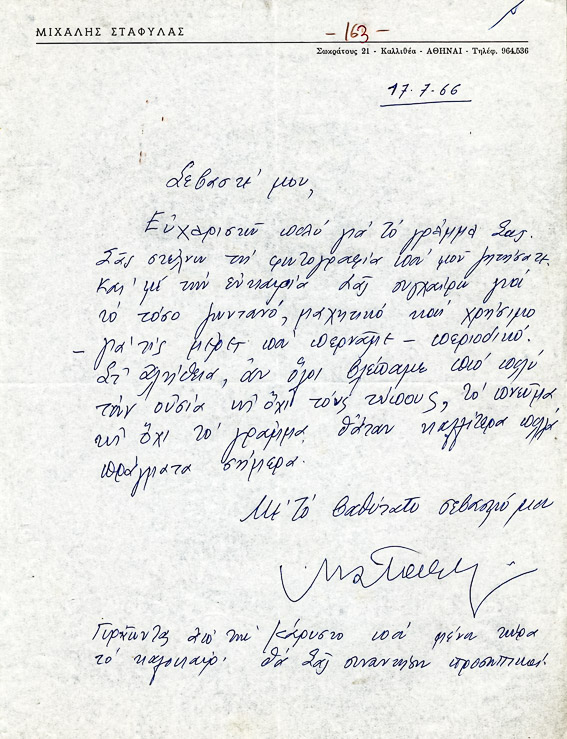 ΜΙΧΑΛΗΣ ΣΤΑΦΥΛΑΣ
- 163 -
Σωκράτους 21 - Καλλιθέα - ΑΘΗΝΑΙ - Τηλέφ. 964.536
17.7.66
Σεβαστέ μου,
Εὐχαριστῶ πολύ γιά τό γράμμα Σας.
Σᾶς στέλνω τή φωτογραφία πού μοῦ ζητήσατε
και μέ τήν εὐκαιρία Σᾶς συγχαίρω γιά
τό τόσο ζωντανό, μαχητικό καί χρήσιμο
- γιά τίς μέρες πού περνᾶμε - περιοδικό.
Στ' ἀλήθεια, ἄν ὅλοι βλέπαμε πιό πολύ
τήν οὐσία κι ὄχι τούς τύπους, τό πνεῦμα
κι ὄχι τό γράμμα θἆταν καλλίτερα πολλά
πράγματα σήμερα.
Μέ τό βαθύτατο σεβασμό μου
Γυρίζοντας ἀπό τήν Κάρυστο πού μένω τώρα
τό καλοκαίρι θά Σᾶς συναντήσω προσωπικά.